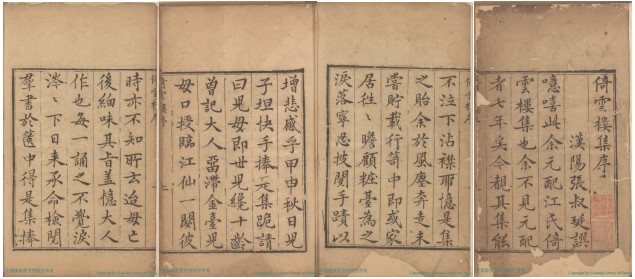 倚雲樓集序
漢陽張叔珽譔
噫嘻此余元配江氏倚
雲樓集也余不見元配
者七年矣今覩其集能
不泣下沾襟耶憶是集
之貽余於風塵奔走未
嘗貯載行笥中即或家
居徃〻瞻顧粧臺為之
淚落寧忍披閱手蹟以
增悲感乎甲申秋日兒
子坦快手捧是集跪請
曰兒母即世兒纔十齡
曾記大人畱滯金臺兒
母口授臨江仙一闋彼
時亦不知所云迨母亡
後紬味其旨蓋憶大人
作也每一誦之不覺淚
涔〻下日来承命檢閱
羣書於篋中得是集捧